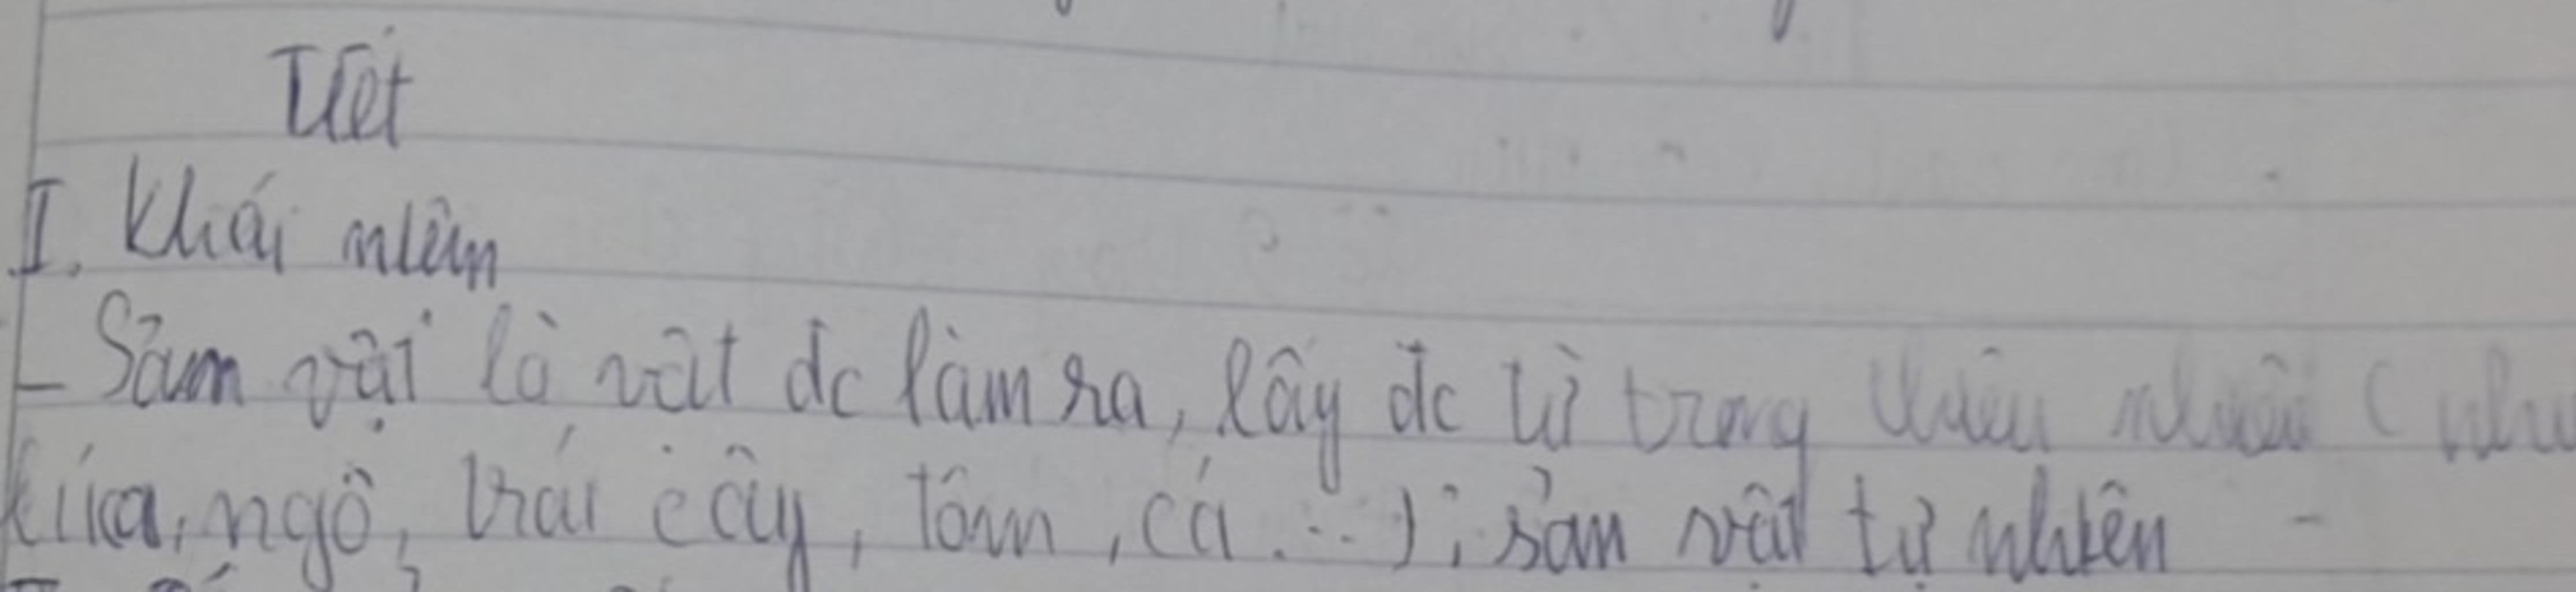 Tiết
I. Khái niệm
- Sản vật là vật đc làm ra, lấy đc từ trong thiên nhiên (như
lúa, ngô, trái cây, tôm, cá...); sản vật tự nhiên -